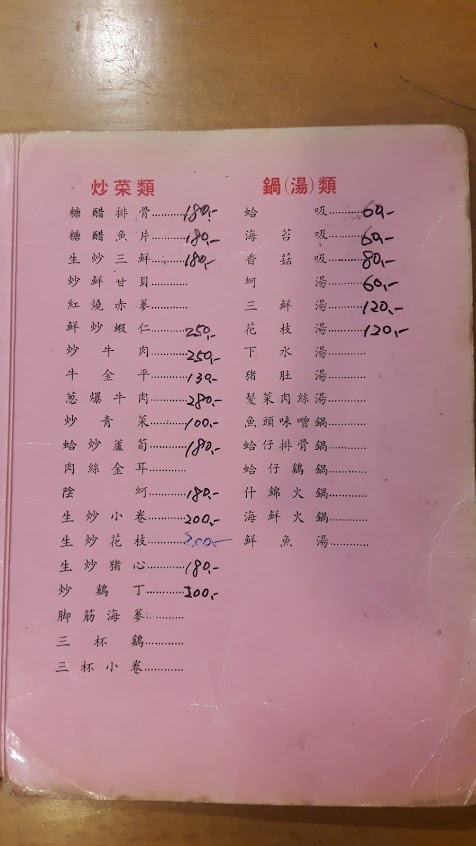 炒菜類
糖醋排骨............180,-
糖醋魚片............180,-
生炒三鮮............180,-
炒鮮甘貝............
紅燒赤蔘............
鮮炒蝦仁............250,-
炒牛肉............250,-
牛金平............130,-
葱爆牛肉............280,-
炒青菜............100,-
蛤炒蘆筍............180,-
肉絲金耳............
陰蚵............180,-
生炒小卷............200,-
生炒花枝............200,-
生炒猪心............180,-
炒鷄丁............200,-
脚筋海蔘............
三杯鷄............
三杯小卷............
鍋(湯)類
蛤吸............60,-
海苔吸............60,-
香菇吸............80,-
蚵湯............60,-
三鮮湯............120,-
花枝湯............120,-
下水湯............
猪肚湯............
髮菜肉絲湯............
魚頭味噌鍋............
蛤仔排骨鍋............
蛤仔鷄鍋............
什錦火鍋............
海鮮火鍋............
鮮魚湯............